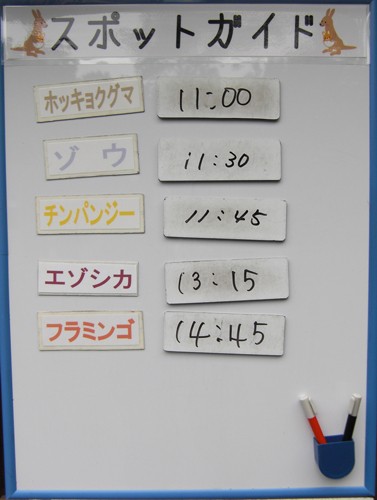 スポットガイド
ホッキョクグマ 11:00
ゾウ 11:30
チンパンジー 11:45
エゾシカ 13:15
フラミンゴ 14:45